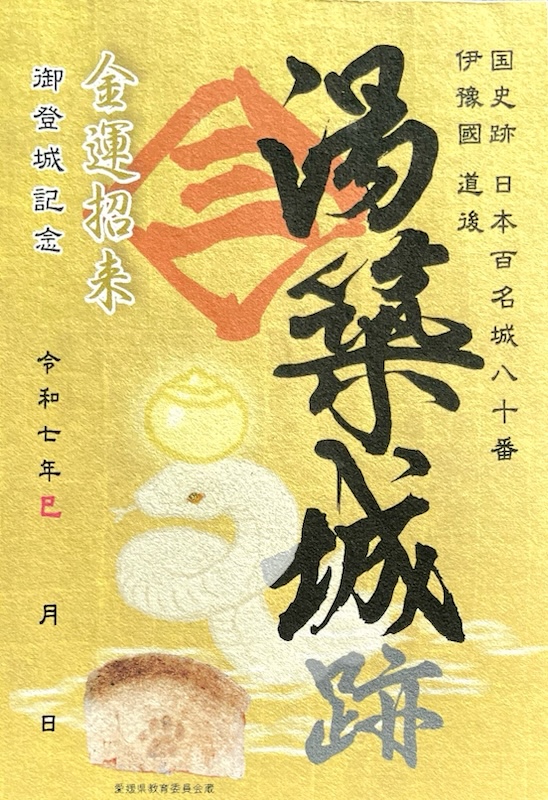 国史跡 日本百名城八十番
伊豫國 道後
湯築城跡
金運招来
御登城記念
令和七年巳 月 日
愛媛県教育委員会蔵